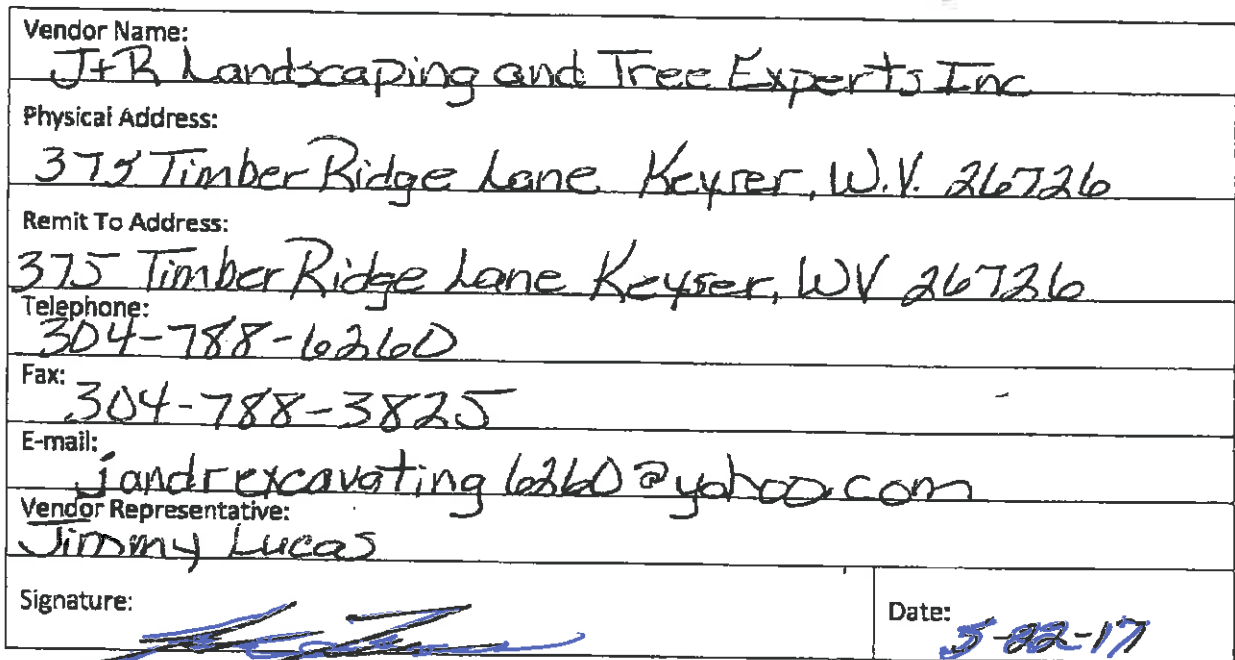 Vendor Name:
J+R Landscaping and Tree Experts Inc
Physical Address:
375 Timber Ridge Lane Keyser, W.V. 26726
Remit To Address:
375 Timber Ridge Lane Keyser, WV 26726
Telephone:
304-788-6260
Fax:
304-788-3825
E-mail:
jandrexcavating6260@yahoo.com
Vendor Representative:
Jimmy Lucas
Signature:
Date: 5-22-17